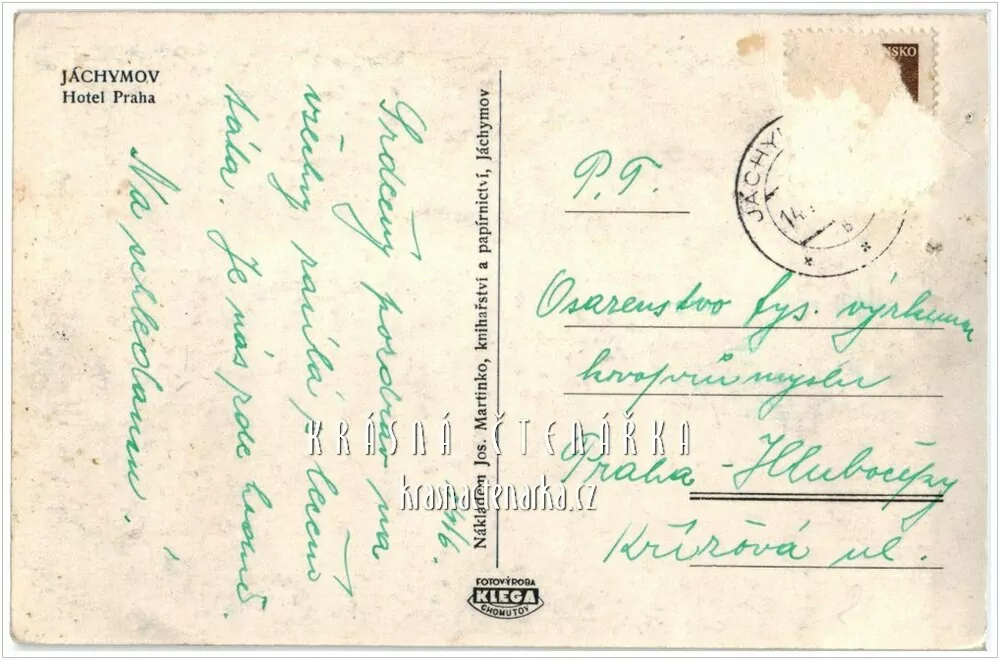 JÁCHYMOV
Hotel Praha
14/6.
Srdečný pozdrav na
všechny posílá p. 
táta. Je nás zde hodně.
Na shledanou.
Nákladem Jos. Martinko, knihařství a papírnictví, Jáchymov
FOTOVÝROBA
KLEGA
CHOMUTOV
NSKO
JÁCHY
14.
B
P. T.
Osazenstvo fys. výzkumu
kovoprůmyslu
Praha - Hlubočepy
Křížová ul.
KRÁSNÁ ČTENÁŘKA
krasnactenarka.cz